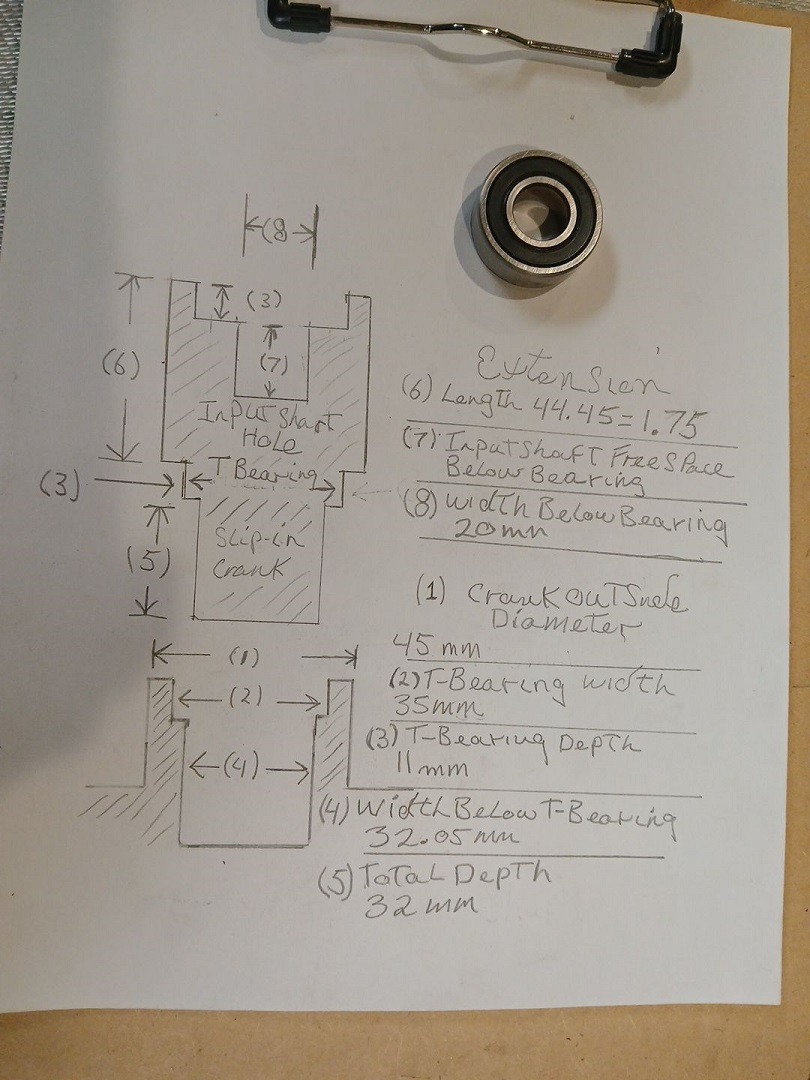 (8
(3)
(6)
(7)
InPut Shaft
HOLe
T Bearing
(3)
(5)
SLip-in
Crank
(1)
(2)
(4)
Extension
(6) Length 44.45=1.75
(7) InPutShafT FreeSPace
Below Bearing
(8) width Below Bearing
20mm
(1) Crank
Diameter
45 mm
(2) T-Bearing width
35mm
(3) T-Bearing DepTh
11mm
(4) WidthBelowT-Bearing
32.05mm
(5) ToTaL DepTh
32 mm